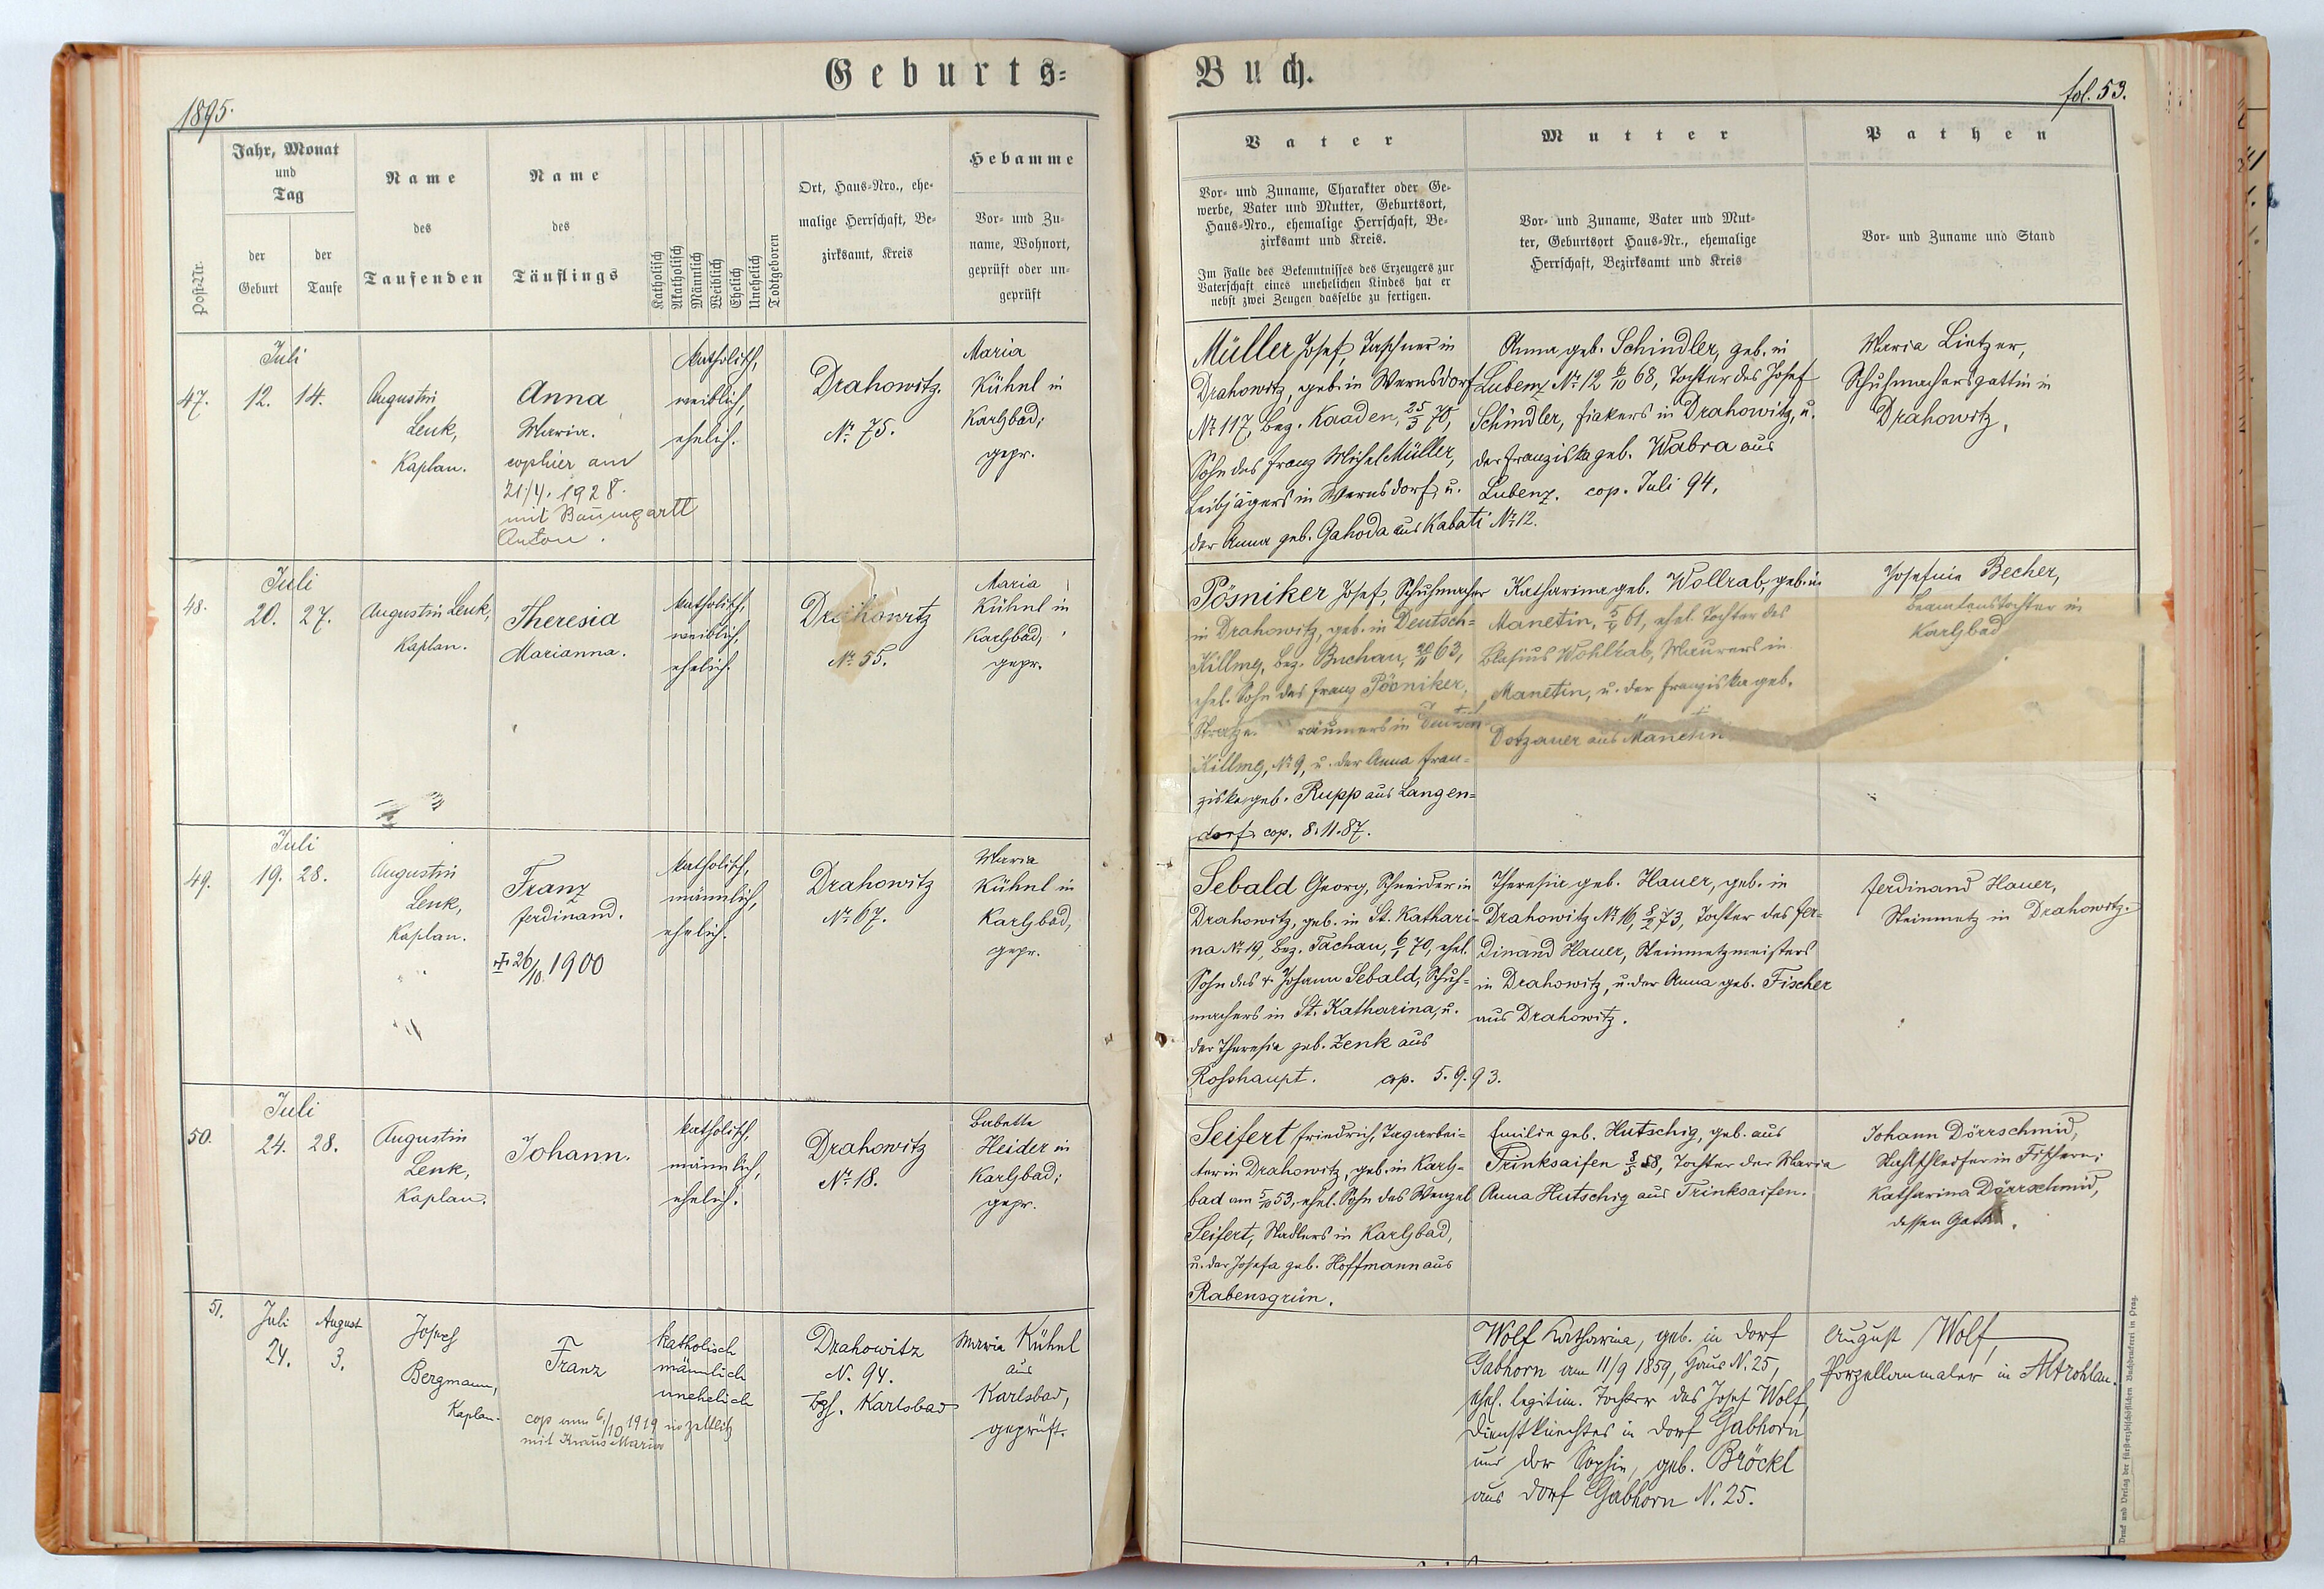 Geburts=
Buch.
1895.
fol. 53.
Post-Nr.
Jahr, Monat
und
Tag
der
Geburt
der
Taufe
Name
des
Taufenden
Name
des
Täuflings
Katholisch
Akatholisch
Männlich
Weiblich
Ehelich
Unehelich
Todtgeboren
Ort, Haus-Nro., ehe-
malige Herrschaft, Be-
zirksamt, Kreis
Hebamme
Vor- und Zu-
name, Wohnort,
geprüft oder un-
geprüft
Vater
Vor- und Zuname, Charakter oder Ge-
werbe, Vater und Mutter, Geburtsort,
Haus-Nro., ehemalige Herrschaft, Be-
zirksamt und Kreis.
Im Falle des Bekenntnisses des Erzeugers zur
Vaterschaft eines unehelichen Kindes hat er
nebst zwei Zeugen dasselbe zu fertigen.
Mutter
Vor- und Zuname, Vater und Mut-
ter, Geburtsort Haus-Nr., ehemalige
Herrschaft, Bezirksamt und Kreis
Pathen
Vor- und Zuname und Stand
47.
Juli
12. 14.
Augustin
Lenk,
Kaplan.
Anna
Maria.
copulier am
21./4. 1928.
mit Baumgartl
Anton.
katholisch,
weiblich,
ehelich.
Drahowitz.
No 75.
Maria
Kühnl in
Karlsbad;
gepr.
Müller Josef, Taschner in
Drahowitz, geb. in Wernsdorf
No 117, Bez. Kaaden, 25/3 70,
Sohn des Franz Michel Müller,
Leibjägers in Wernsdorf, u.
der Anna geb. Gahoda aus Kabati No 12.
Anna geb. Schindler, geb. in
Lubenz No 12 6/10 68, Tochter des Josef
Schindler, Fiakers in Drahowitz, u.
der Franziska geb. Wabra aus
Lubenz. cop. Juli 94.
Maria Lietzer,
Schuhmachersgattin in
Drahowitz.
48.
Juli
20. 27.
Augustin Lenk,
Kaplan.
Theresia
Marianna.
katholisch,
weiblich,
ehelich.
Drahowitz
No 55.
Maria
Kühnl in
Karlsbad,
gepr.
Pösniker Josef, Schuhmacher
in Drahowitz, geb. in Deutsch=
Killmes, Bez. Buchau, 20/11 63,
ehel. Sohn des Franz Pösniker,
räumers in Deutsch
Killmes, No 9, u. der Anna Fran=
ziska geb. Rupp aus Langen=
dorf. cop. 8.11.87.
Katharina geb. Wollrab, geb. in
Manetin, 61, ehel. Tochter des
Blasius Wohlrab, Maurers in
Manetin, u. der Franziska geb.
Dotzauer aus Manetin
Josefine Becher,
Beamtenstochter in
Karlsbad
49.
Juli
19. 28.
Augustin
Lenk,
Kaplan.
Franz
Ferdinand.
26/10. 1900
katholisch,
männlich,
ehelich.
Drahowitz
No 67.
Maria
Kühnl in
Karlsbad,
gepr.
Sebald Georg, Schneider in
Drahowitz, geb. in St. Kathari=
na No 19, Bez. Tachau, 6/1 70, ehel.
Sohn des + Johann Sebald, Schuh=
machers in St. Katharina, u.
der Theresia geb. Zenk aus
Rosshaupt. cop. 5.9.93.
Theresia geb. Hauer, geb. in
Drahowitz No 16, 8/2 73, Tochter des Fer=
dinand Hauer, Steinmetzmeisters
in Drahowitz, u. der Anna geb. Fischer
aus Drahowitz.
Ferdinand Hauer,
Steinmetz in Drahowitz.
50.
Juli
24. 28.
Augustin
Lenk,
Kaplan.
Johann.
katholisch,
männlich,
ehelich.
Drahowitz
No 18.
Babette
Heider in
Karlsbad;
gepr.
Seifert Friedrich, Tagarbei=
ter in Drahowitz, geb. in Karls=
bad am 5/10 53, ehel. Sohn des Wenzel
Seifert, Nadlers in Karlsbad,
u. der Josefa geb. Hoffmann aus
Rabensgrün.
Emilie geb. Hutschig, geb. aus
Trinksaifen 8/5 58, Tochter der Maria
Anna Hutschig aus Trinksaifen.
Johann Dörrschmid,
Stahlschleifer in Fischern;
Katharina Dörrschmid,
dessen Gattin.
51.
Juli August
24. 3.
Josef
Bergmann,
Kaplan.
Franz
cop am 6./10 1919 in Zettlitz
mit Kraus Marie
katholisch
männlich
unehelich
Drahowitz
N. 94.
Bzh. Karlsbad
Maria Kühnl
aus
Karlsbad,
geprüft.
Wolf Katharina, geb. in Dorf
Gabhorn am 11/9 1859, Haus N. 25,
ehel. legitim. Tochter des Josef Wolf,
Dienstknechtes in Dorf Gabhorn
und der Sophie, geb. Bröckl
aus Dorf Gabhorn N. 25.
August Wolf,
Porzellanmaler in Altrohlau.
Druck und Verlag der fürsterzbischöflichen Buchdruckerei in Prag.